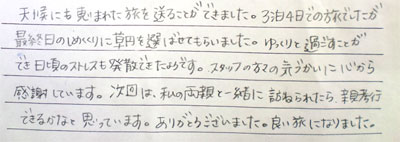 天候にも恵まれた旅を送ることができました。3泊4日での旅でしたが
最終日のしめくくりに草円を選ばせてもらいました。ゆっくりと過ごすことが
でき日頃のストレスも発散できたようです。スタッフの方々の気づかいに心から
感謝しています。次回は、私の両親と一緒に訪ねられたら、親孝行
できるかなと思っています。ありがとうございました。良い旅になりました。